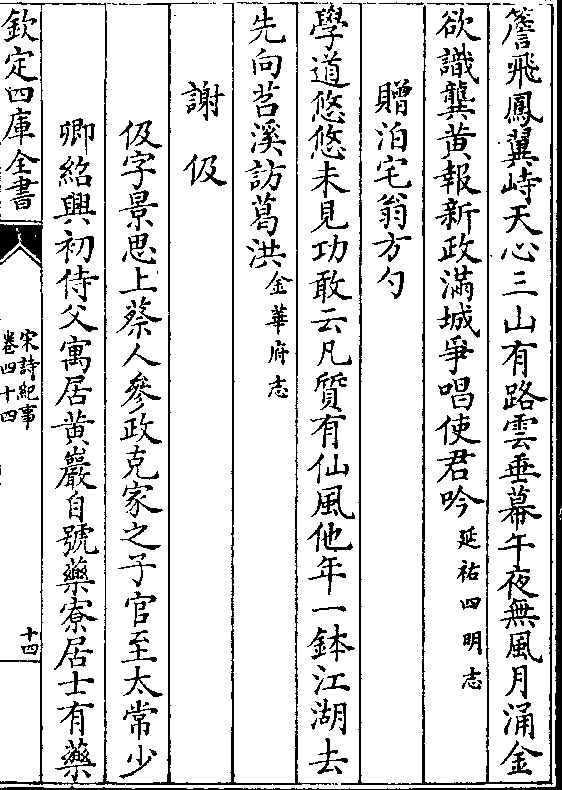 簷飛鳳翼峙天心三山有路雲垂幕午夜無風月涌金
欲識龔黄報新政滿城爭唱使君吟延祐四明志
贈泊宅翁方勺
學道悠悠未見功敢云凡質有仙風他年一鉢江湖去
先向苕溪訪葛洪金華府志
謝伋
伋字景思上蔡人參政克家之子官至太常少
卿紹興初侍父寓居黄巖自號藥寮居士有藥
欽定四庫全書
宋詩紀事
卷四十四
十四